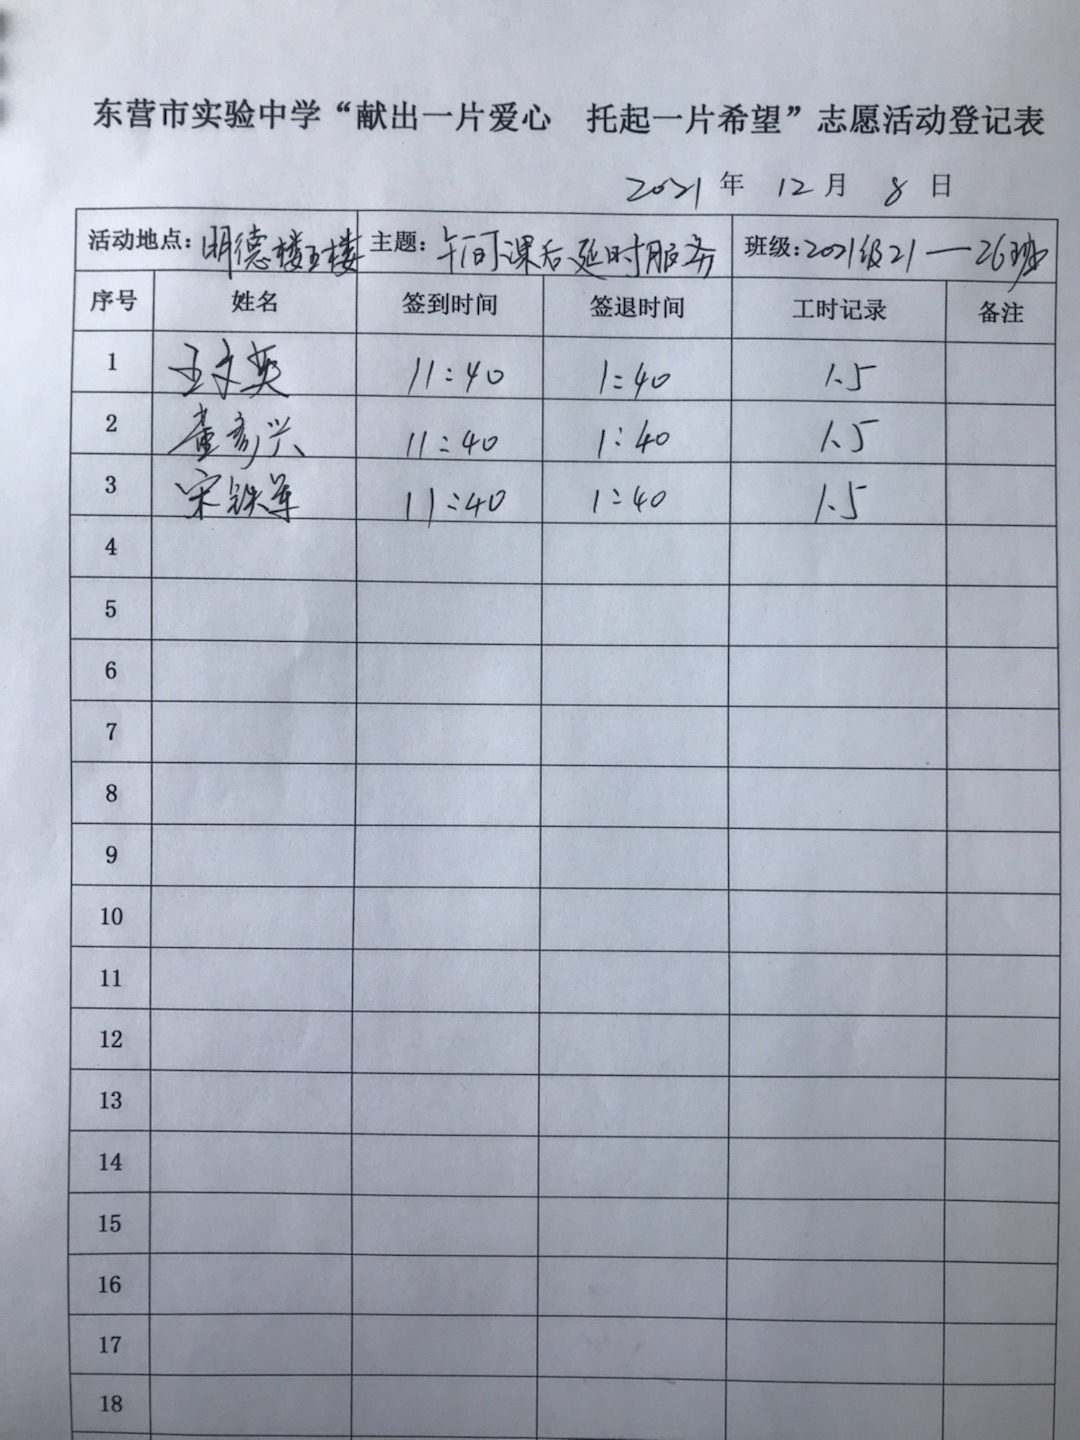 东营市实验中学“献出一片爱心 托起一片希望”志愿活动登记表
2021年 12月 8日
活动地点：明德楼五楼 主题：午间课后延时服务 班级：2021级21—26班
序号 姓名 签到时间 签退时间 工时记录 备注
1 王文英 11:40 1:40 1.5
2 董彦兴 11:40 1:40 1.5
3 宋铁军 11:40 1:40 1.5
4
5
6
7
8
9
10
11
12
13
14
15
16
17
18